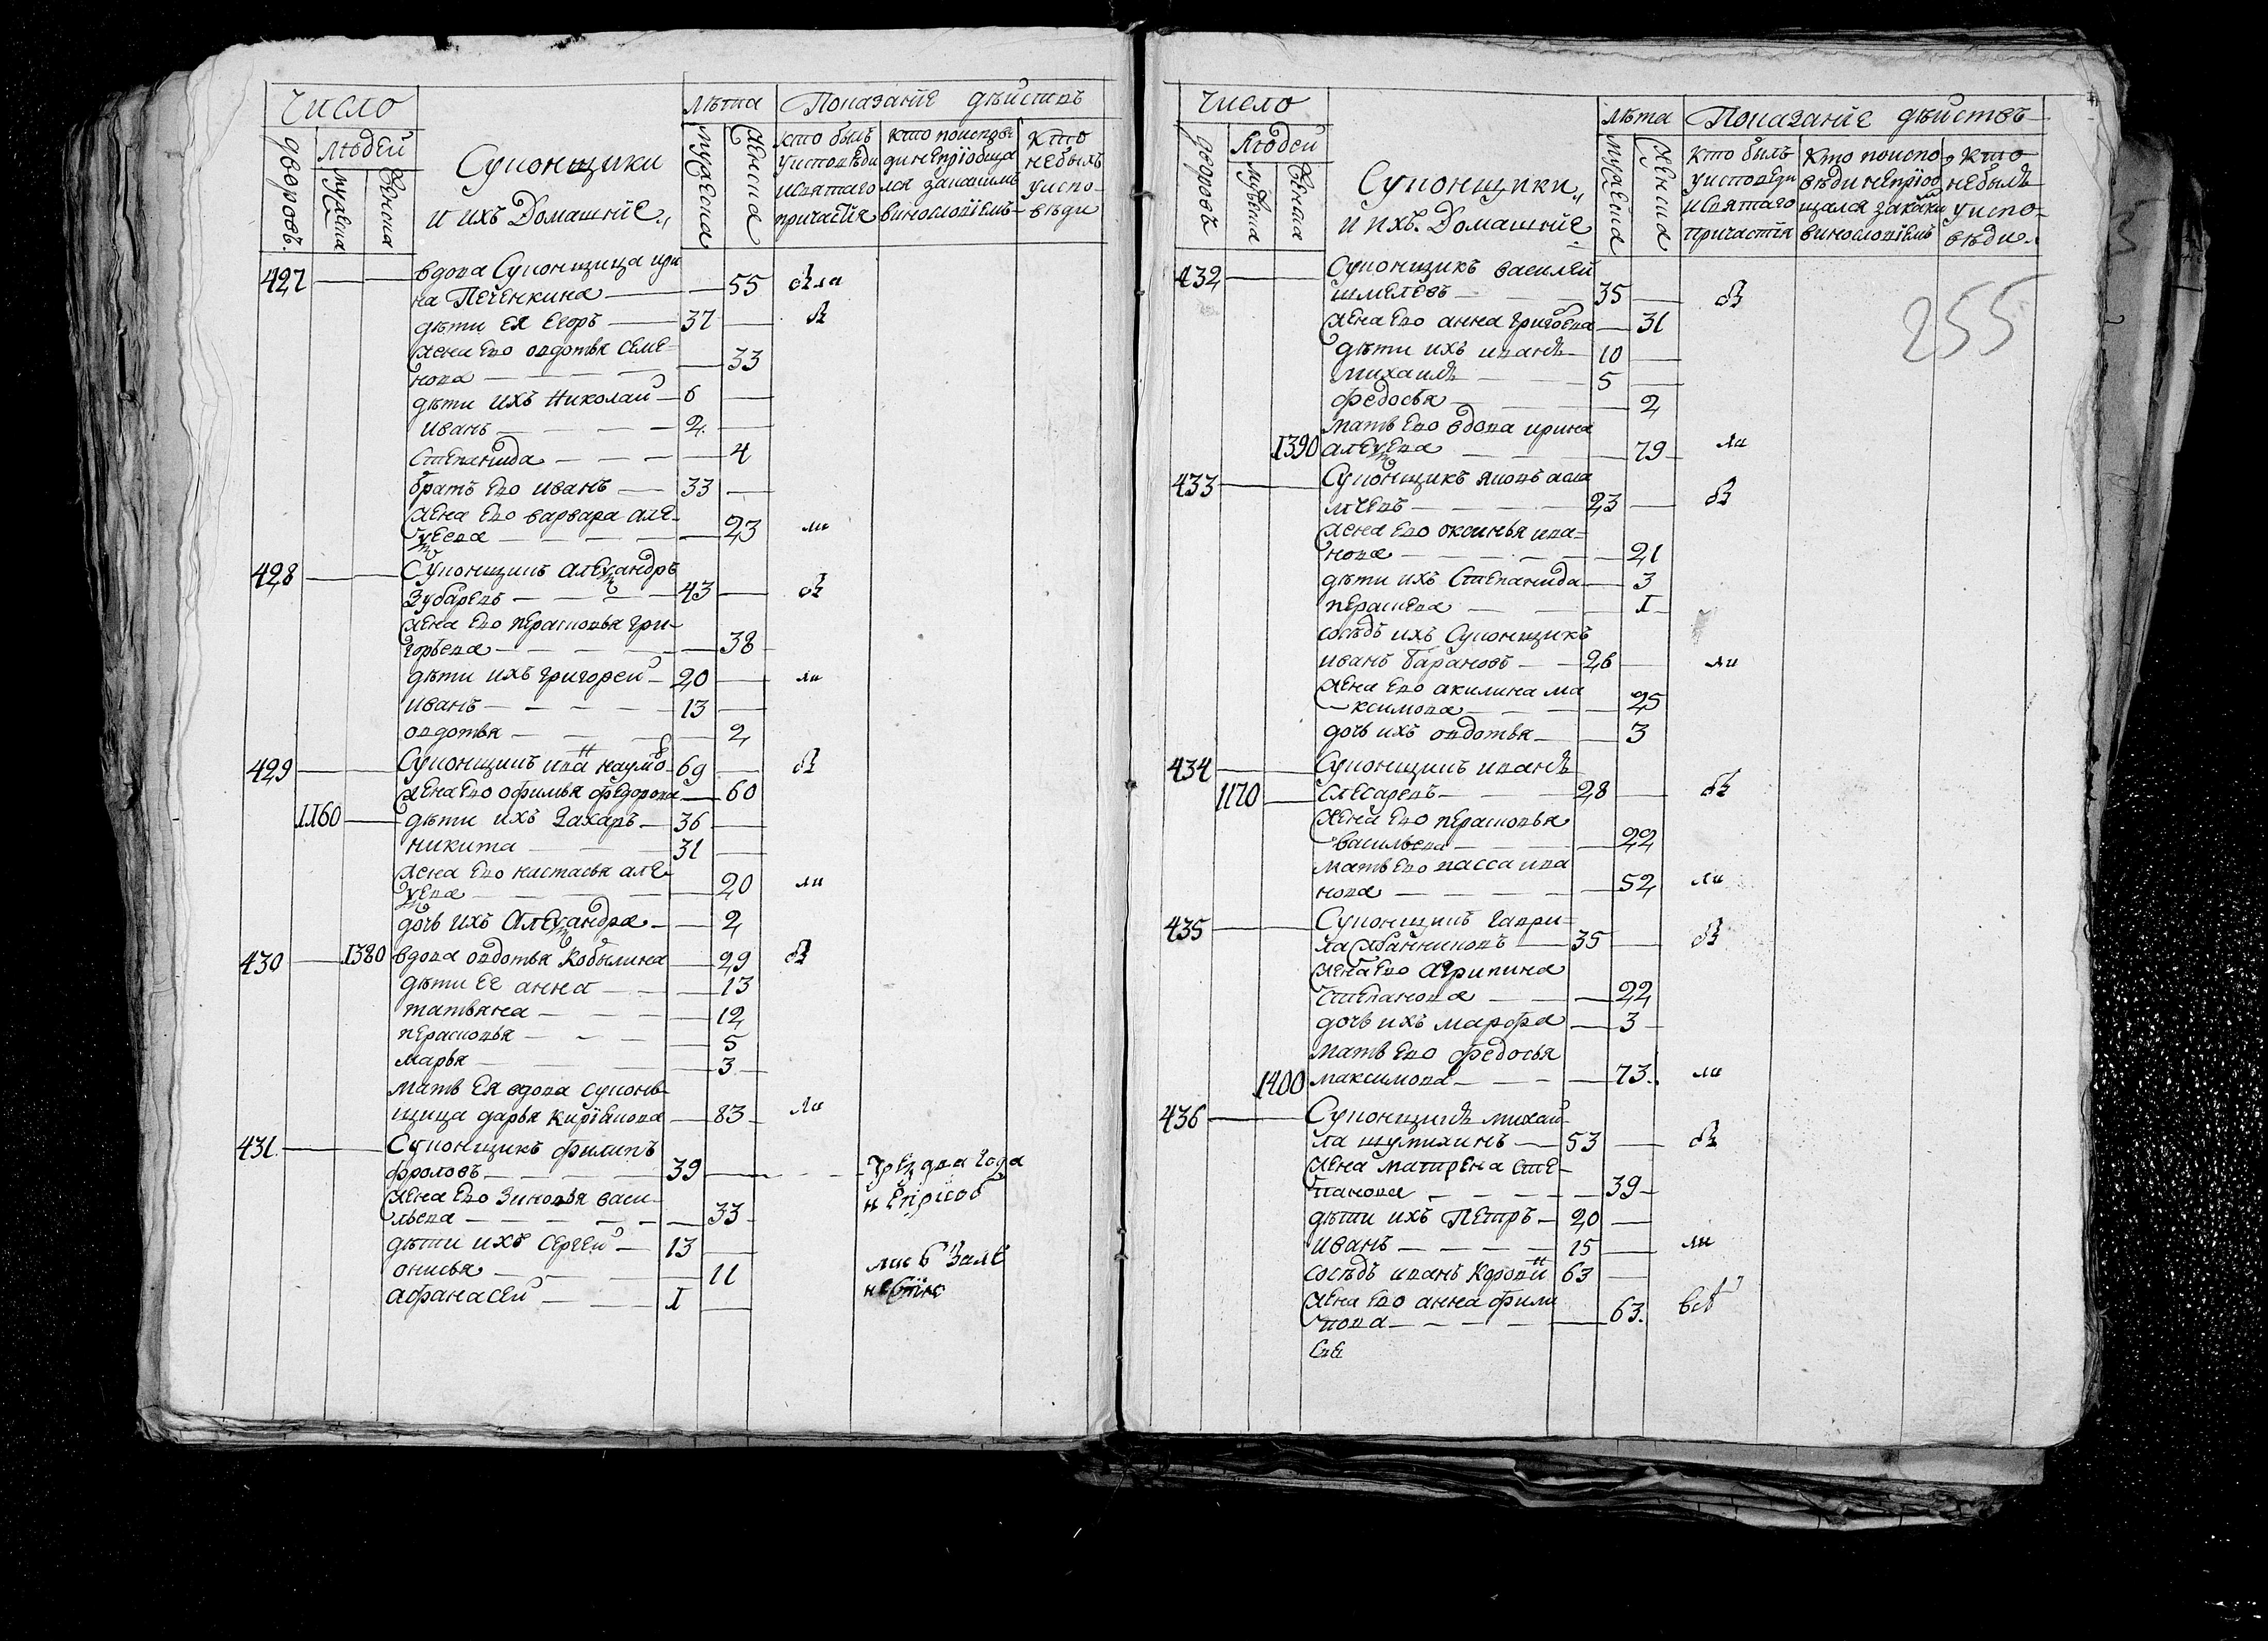 Число
лѣта Показанїе дѣйствъ
дворовъ.
людей
мужеска
женска
Суконщики
и ихъ Домашнїе
мужеска
женска
кто былъ
у исповѣди
и святаго
причастїя
кто по исповѣ
ди не прїобща
лся за какимъ
винословїемъ
кто
не былъ
у испо-
вѣди
427 вдова Суконщица ири
на Печенкина 55 была
дѣти ея Егоръ 37 бы
жена ево овдотья Семе-
нова 33
дѣти ихъ Николай 6
Иванъ 2
Степанида 4
братъ ево иванъ 33
жена ево варвара але-
ѯеева 23 ли
428 Суконщикъ Алеѯандръ
Зубаревъ 43 бы
жена ево перасковья гри-
горьева 38
дѣти ихъ григорей 20 ли
иванъ 13
овдотья 2
429 Суконщикъ ива наумо 69 бы
жена ево офимья федорова 60
1160 дѣти ихъ Захаръ 36
никита 31
жена ево настасья але-
ѯева 20 ли
дочь ихъ Алеѯандра 2
430 1380 вдова овдотья Кобылина 29 бы
дѣти ее анна 13
татьяна 12
перасковья 5
марья 3
мать ея вдова суконь
щица дарья Кирїанова 83 ли
431 Суконщикъ филипъ
фроловъ 39 чрез два года
жена ево Зиновья васи-
льева 33 не прїоб
дѣти ихъ Сергей 13
онисья 11
Афанасей 1
Число
лѣта Показанїе дѣйствъ
дворовъ
Людей
мужеска
женска
Суконщики
и ихъ Домашнїе
мужеска
женска
кто былъ
у исповеди
и святаго
причастїя
Кто по испо
вѣди не прїоб
щался за каки
винословїемъ
кто
не былъ
у испо-
вѣди
255
432 Суконщикъ василей
шмелевъ 35 бы
жена ево анна григоева 31
дѣти ихъ иванъ 10
михаилъ 5
федосья 2
мать ево вдова ирина
1390 алеѯева 79 ли
433 Суконщикъ яковъ
23 бы
жена ево оксинья ива-
нова 21
дѣти ихъ Степанида 3
1
сосѣдъ ихъ Суконщикъ
иванъ барановъ 26 ли
жена ево акилина ма
ксимова 25
дочь ихъ овдотья 3
434 Суконщикъ иванъ
1170 Слесаревъ 28 бы
жена ево перасковья
васильева 22
мать ево васса ива
нова 52 ли
435 Суконщикъ гаври-
ла 35 бы
жена ево Агрипина
степанова 22
дочь ихъ марфа 3
мать ево федосья
1400 максимова 73 ли
436 Суконщикъ михай
ла шумихинъ 53 бы
жена матрена сте-
панова 39
дѣти ихъ Петръ 20
иванъ 15 ли
сосѣдъ иванъ 63
жена ево анна фили
пова 63. всѣ
Еве